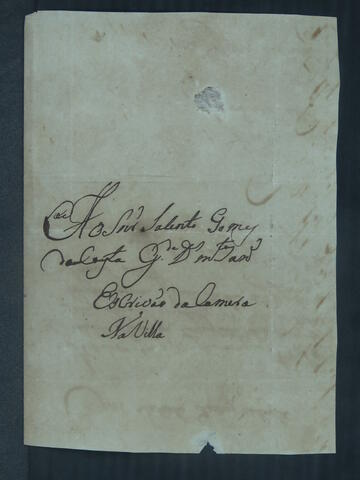 Ao Snr Salento Gomez
da Costa G.de D.s m.tes an.s
Escrivão da Camera
Na Villa